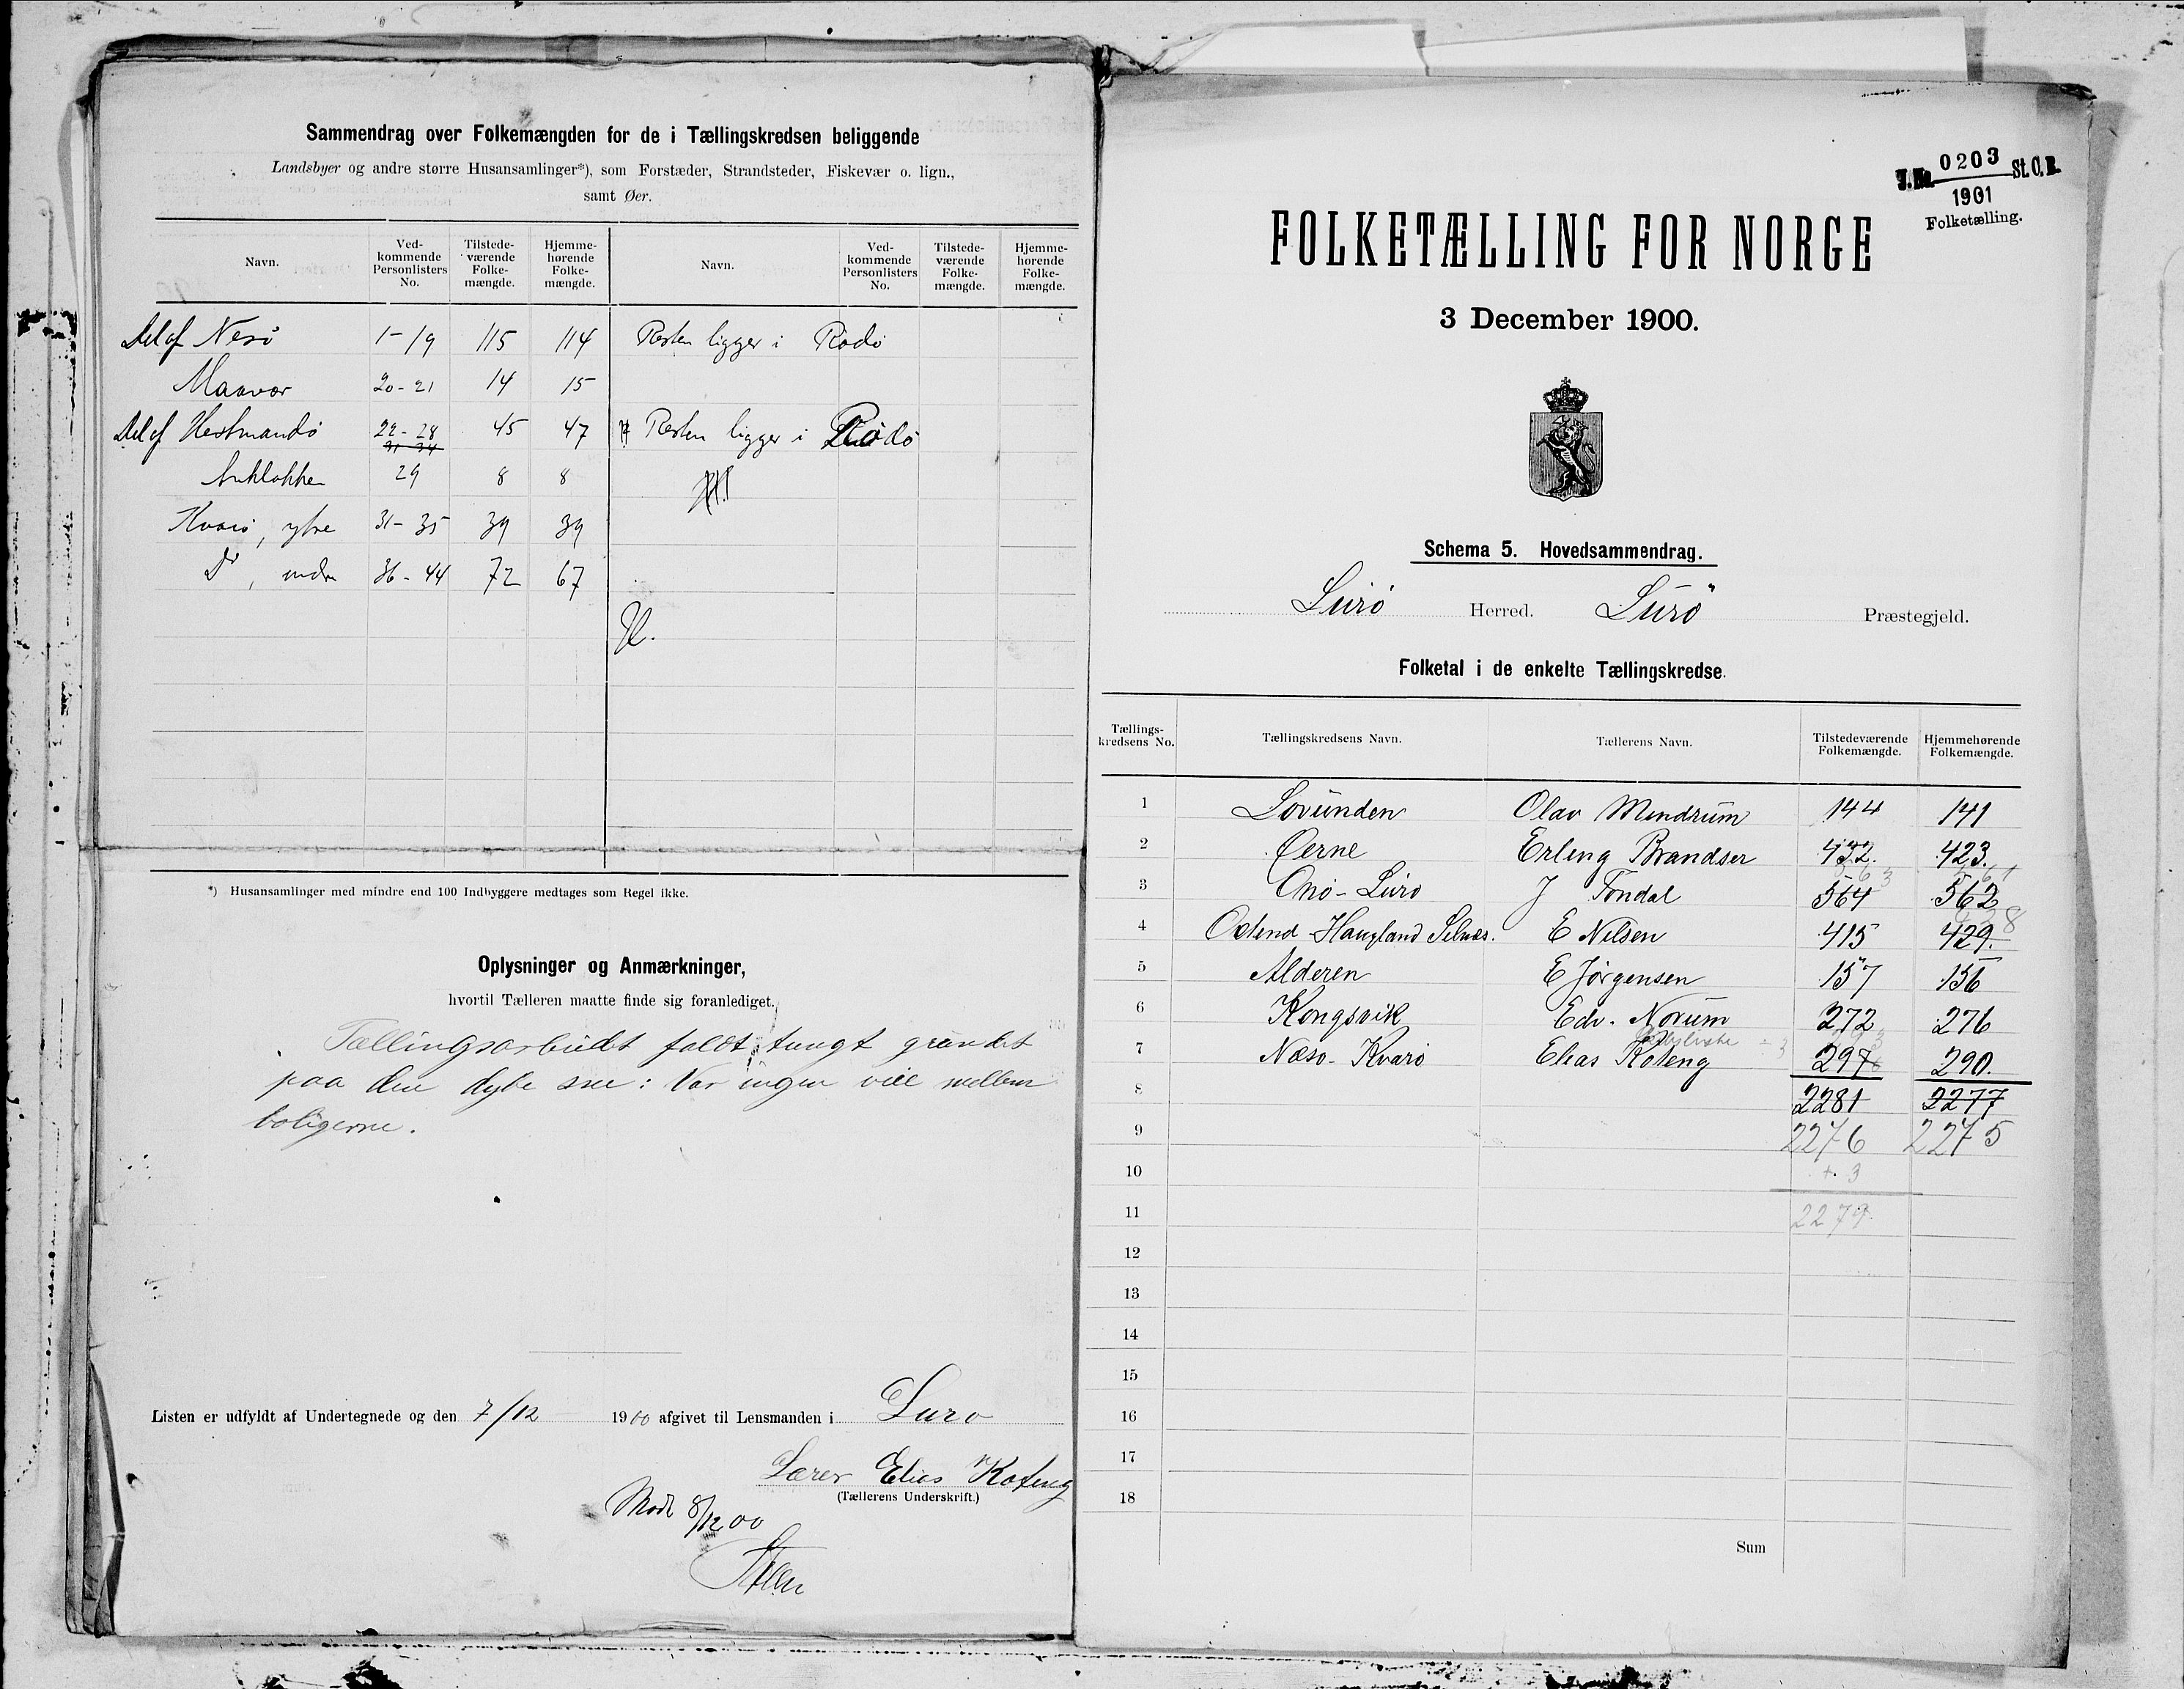 Sammendrag over Folkemængden for de i Tællingskredsen beliggende
Landsbyer og andre større Husansamlinger*), som Forstæder, Strandsteder, Fiskevær o. lign.,
samt Øer.
Navn. Ved-kommende Personlisters No. Tilstede-værende Folke-mængde. Hjemme-hørende Folke-mængde. Navn. Ved-kommende Personlisters No. Tilstede-værende Folke-mængde. Hjemme-hørende Folke-mængde.
Del af Nesø 1-19 115 114 Resten ligger i Rødø
Maavær 20-21 14 15
Del af Hestmandø 22-28 45 47 Resten ligger i Rødø
31-34
29 8 8
Kvarø, ytre 31-35 39 39
Do, indre 36-44 72 67
*) Husansamlinger med mindre end 100 Indbyggere medtages som Regel ikke.
Oplysninger og Anmærkninger,
hvortil Tælleren maatte finde sig foranlediget.
Tællingsarbeidet faldt tungt grundet
paa den dybe sne: Var ingen veie mellem
boligerne.
Listen er udfyldt af Undertegnede og den 7/12 1900 afgivet til Lensmanden i Lurø
Lærer Elias Koteng
(Tællerens Underskrift.)
Modt 8/12 00
J. No. 0203 St. C. B.
1901
Folketælling.
FOLKETÆLLING FOR NORGE
3 December 1900.
Schema 5. Hovedsammendrag.
Lurø Herred. Lurø Præstegjeld.
Folketal i de enkelte Tællingskredse.
Tællings-kredsens No. Tællingskredsens Navn. Tællerens Navn. Tilstedeværende Folkemængde. Hjemmehørende Folkemængde.
1 Lovunden Olav Mendrum 144 141
2 Øerne Erling Brandser 432. 423.
563 561
3 Onø-Lurø J Tondal 564 562
428
4 Oxtend-Haugland Selnes. E Nilsen 415 429.
5 Alderen E Jørgensen 157 156
6 Kongsvik Edv. Norum 272 276
7 Næsø-Kvarø Elias Koteng 297 290.
8 2281 2277
9 2276 2275
10 +. 3
11 2279
12
13
14
15
16
17
18
Sum